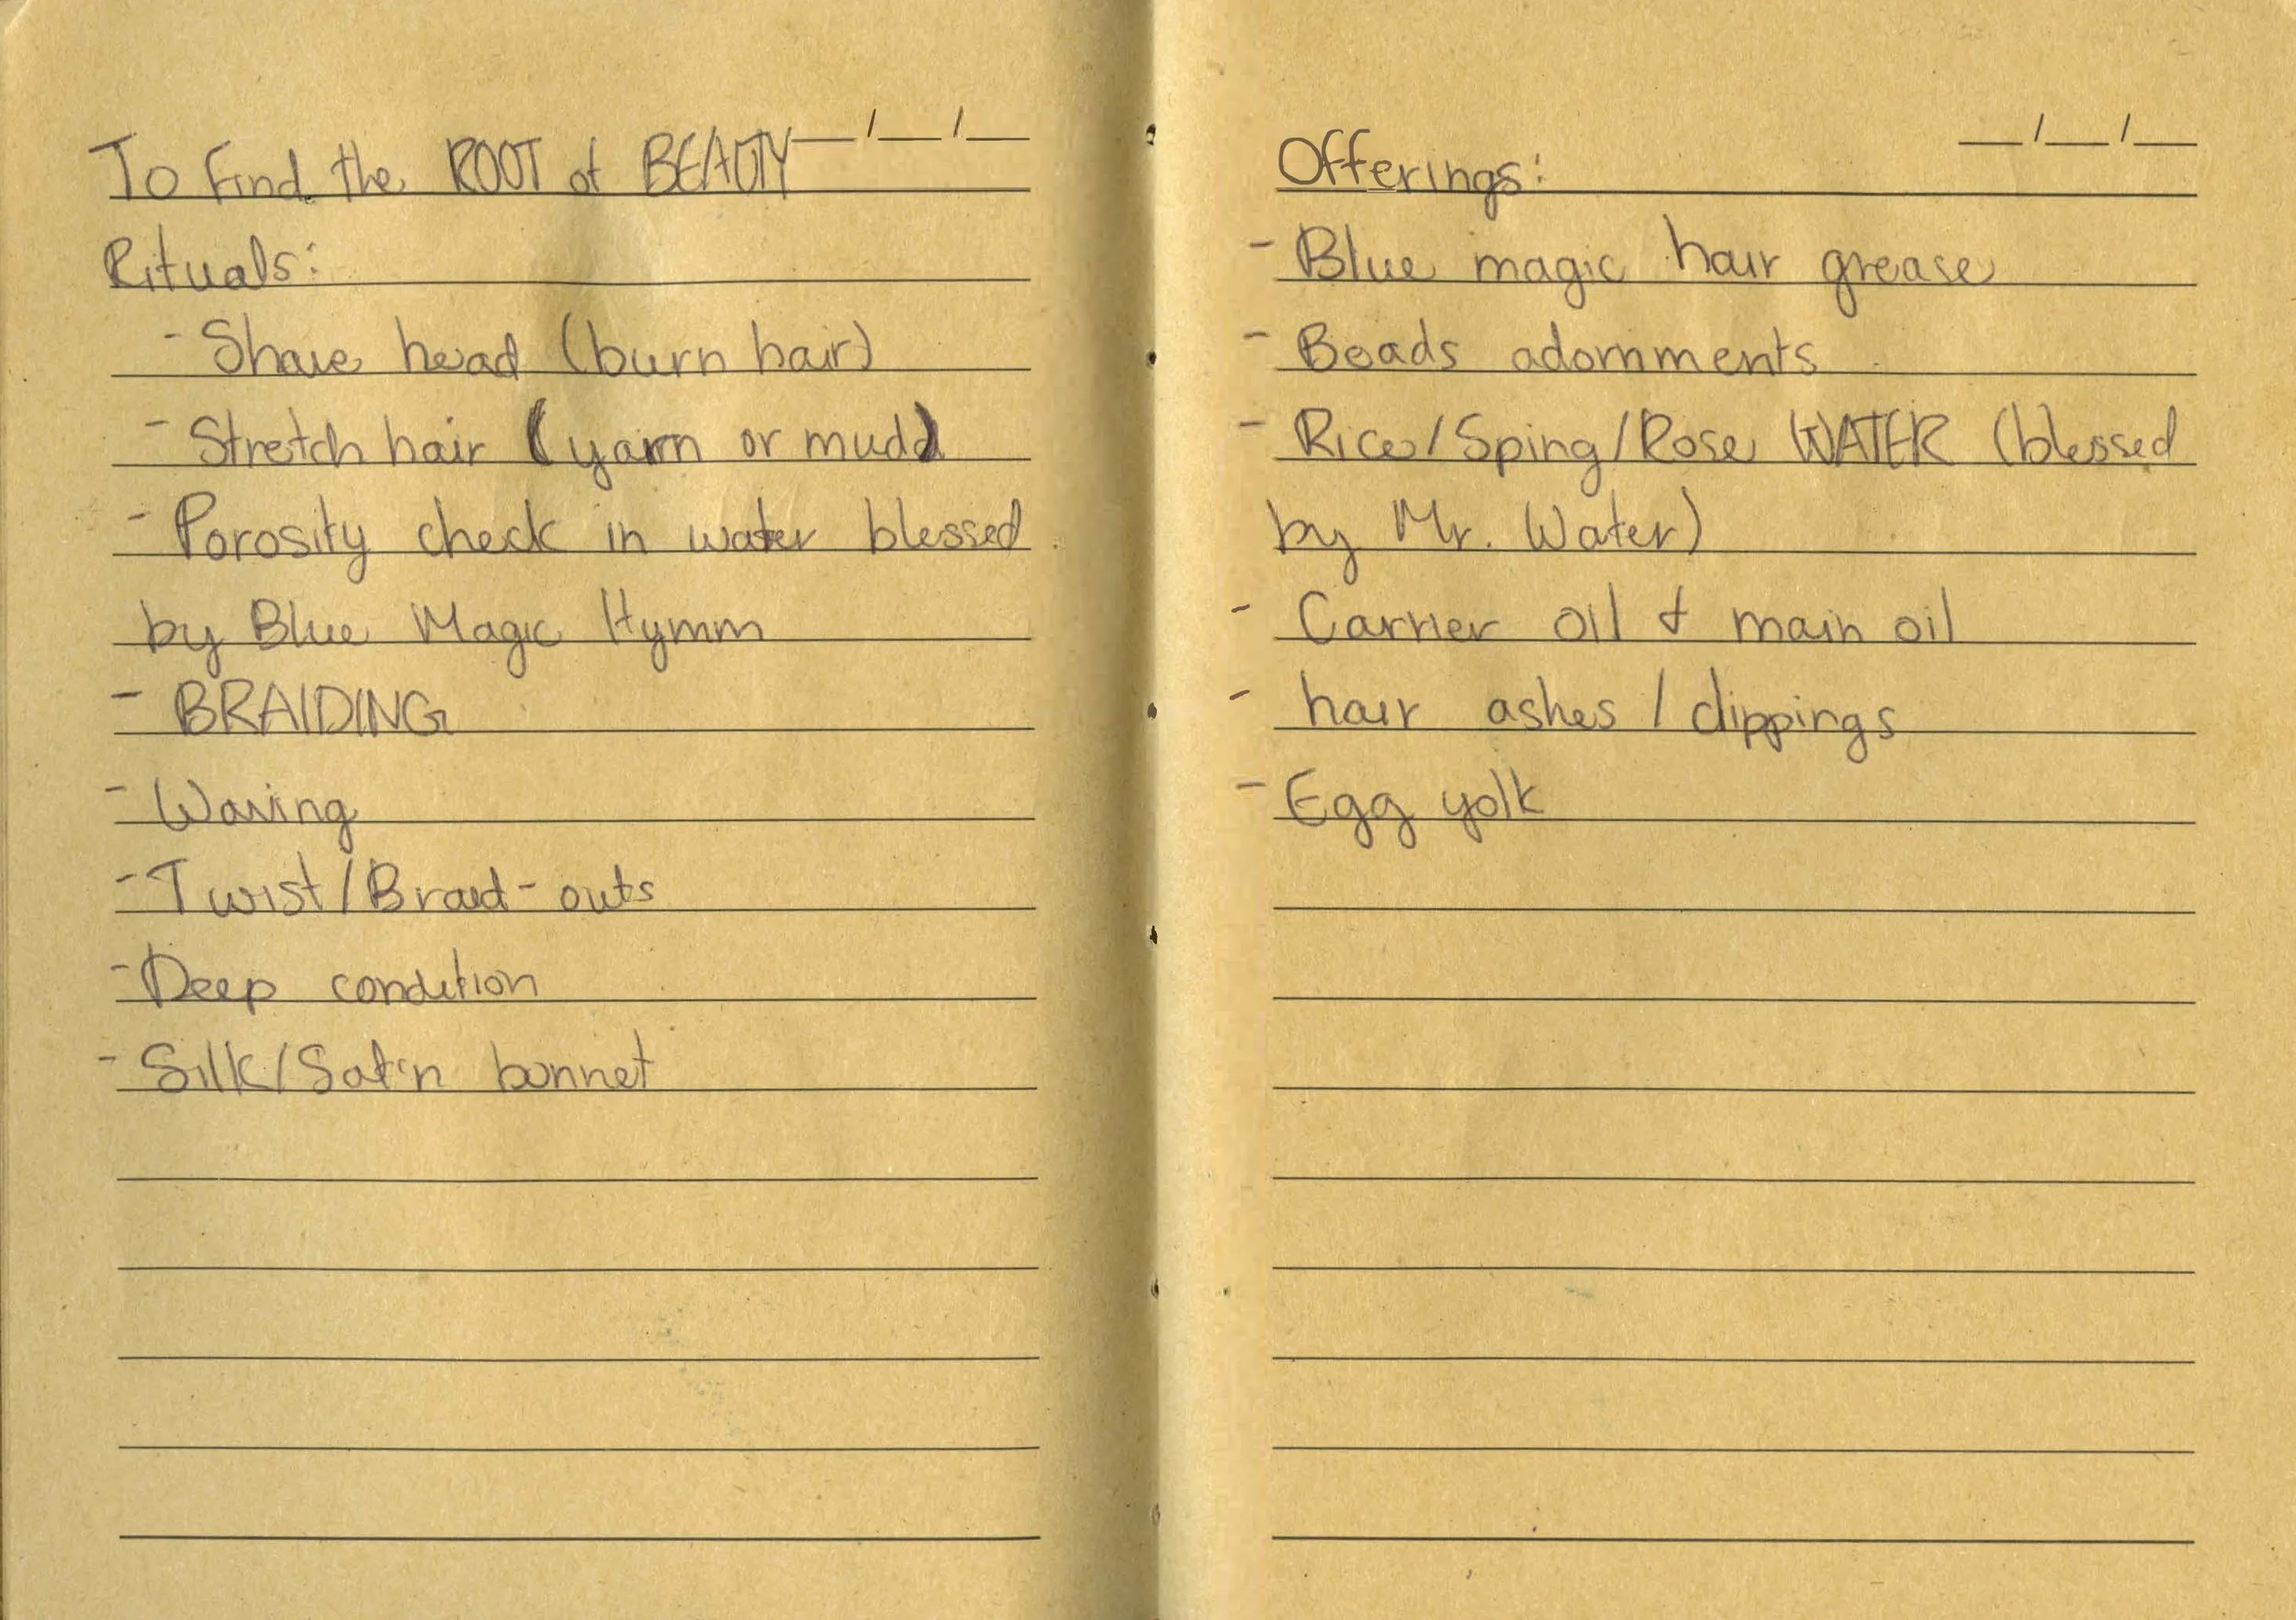 To Find the ROOT of BEAUTY __/__/__
Rituals:
- Shave head (burn hair)
- Stretch hair (yarn or mud)
- Porosity check in water blessed
by Blue Magic Hymm
- BRAIDING
- Waving
- Twist/Braid-outs
- Deep condition
- Silk/Satin bonnet
__/__/__
Offerings:
- Blue magic hair grease
- Beads adornments
- Rice/Sping/Rose WATER (blessed
by Mr. Water)
- Carrier oil & main oil
- hair ashes / clippings
- Egg yolk